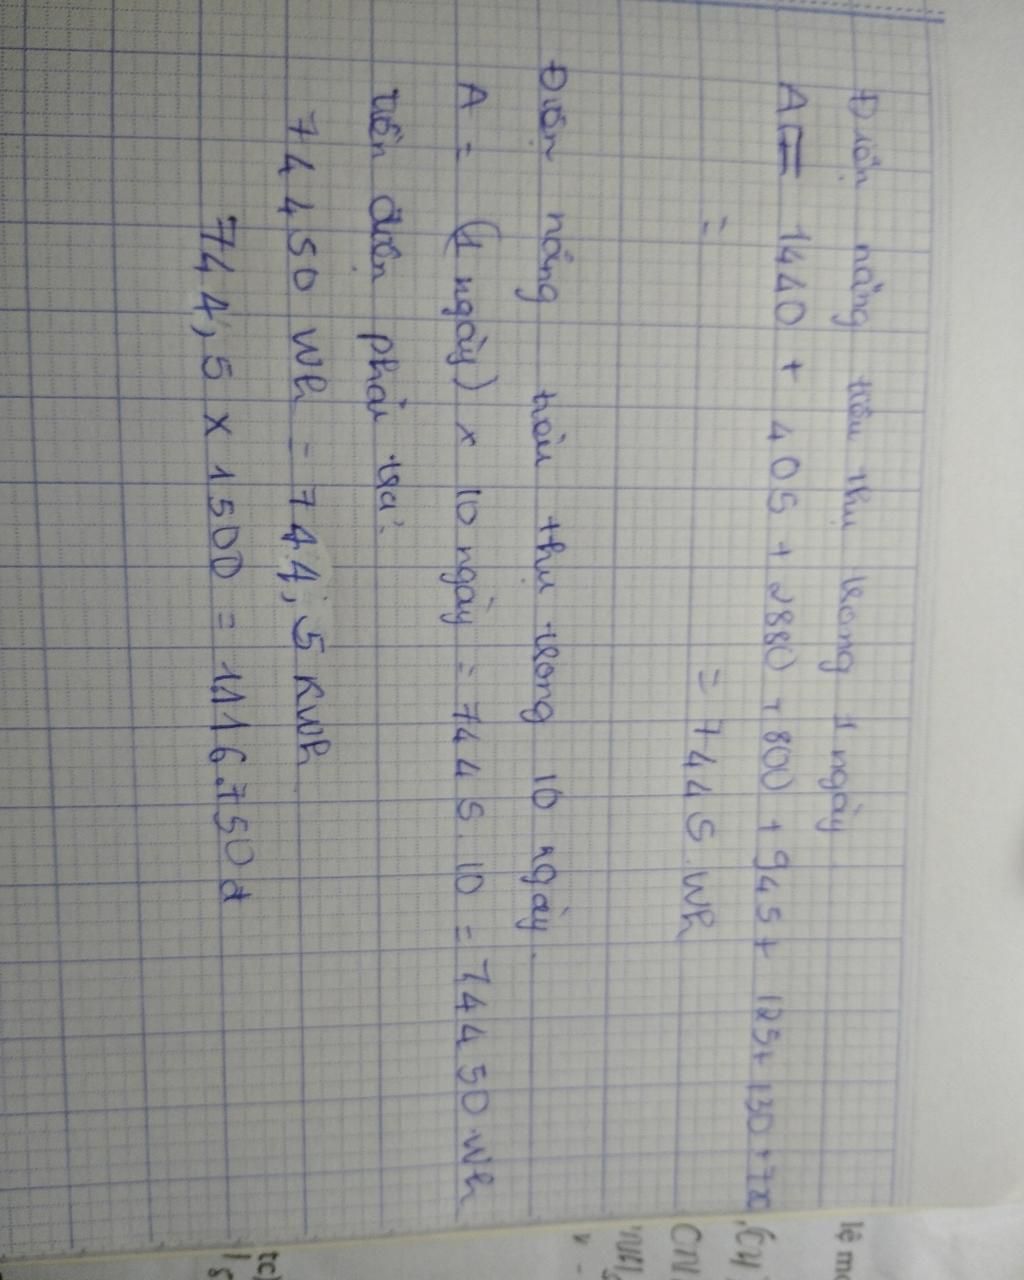 Điện năng tiêu thụ trong 1 ngày
A = 1440 + 405 + 2880 + 800 + 945 + 125 + 130 + 7
=
= 7445 Wh
Điện năng tiêu thụ trong 10 ngày.
A = (1 ngày) x 10 ngày = 7445.10 = 74450 Wh
tiền điện phải trả:
74450 Wh = 744,5 KWh
744,5 x 1500 = 1116.750đ
lệ